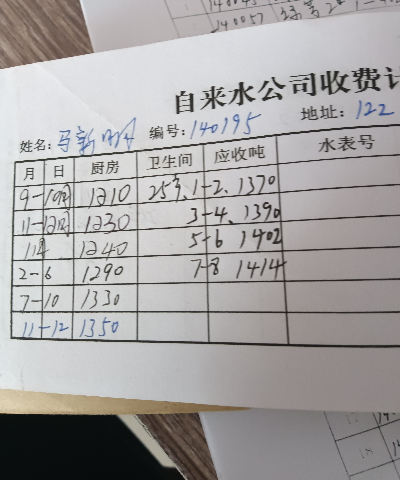 140057
自来水公司收费
姓名:马新 编号:140195 地址:122
月 日 厨房 卫生间 应收吨 水表号
9-10月 1210 25年 1-2、1370
11-12月 1230 3-4、1390
1月 1240 5-6 1402
2-6 1290 7-8 1414
7-10 1330
11-12 1350